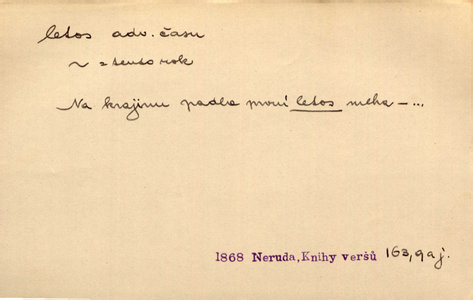 letos adv. času
~ = tento rok
Na krajinu padla první letos mlha – ...
1868 Neruda,Knihy veršů 163,9 aj.